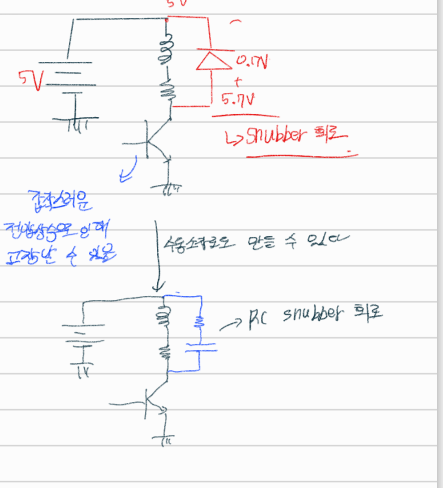 5V
5V
0.7V
+
5.7V
↳ Snubber 회로
갑작스러운
전압상승으로 인해
고장날 수 있음
수동소자로도 만들 수 있다
→ RC snubber 회로